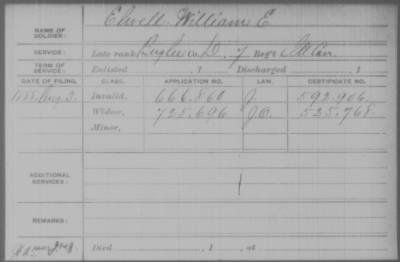 Elwell William E
NAME OF SOLDIER:
SERVICE: Late rank Bugler Co. D, 7 Reg't Ill Cav.
TERM OF SERVICE: Enlisted , 1 Discharged , 1
DATE OF FILING. CLASS. APPLICATION NO. LAW. CERTIFICATE NO.
1888 Aug. 3. Invalid, 666.860 J 592.906
Widow, 725.696 525.768
Minor,
ADDITIONAL SERVICES:
REMARKS:
Died , 1 , at